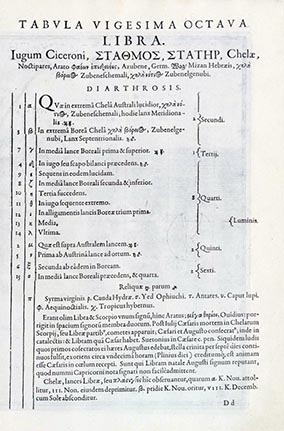 TABVLA VIGESIMA OCTAVA
LIBRA.
Iugum Ciceroni, ΣΤΑΘΜΟΣ, ΣΤΑΤΗΡ, Chelæ,
Noctipares, Arato Azubene, Germ. Wag Mizan Hebræis, χηλὴ
Zubeneschemali, χηλὴ Zubenelgenubi.
DIARTHROSIS.
1 α Quæ in extremâ Chelâ Australi lucidior, χηλὴ
Zubeneschemali, hodie lanx Meridiona-
lis
β In extremâ Boreâ Chelâ χηλὴ Zubenelge-
nubi, Lanx Septentrionalis.
2 Secundi.
γ In mediâ lance Boreali prima & superior.
1 Tertij.
δ In iugo seu scapo bilancis præcedens.
ε Sequens in eodem lucidam.
ζ In mediâ lance Boreali secunda & inferior.
η Tertia succedens.
θ In iugo sequente extremo.
In alligamentis lancis Boreæ trium prima.
κ Media.
λ Vltima.
8 Quarti.
μ Quæ est supra Australem lancem.
ν Prima ab Australinâ lance ad ortum.
2 Quinti.
ξ Secunda ab eâdem in Boream.
ο In mediâ lance Boreali præcedens, & quarta.
2 Sexti.
Luminis.
Reliquæ parum
Syrma virginis ρ. Canda Hydræ σ. Yed Ophiuchi τ. Antares υ. Caput lupi
φ. Aequinoctialis χ. Tropicus hybernus.
Erant olim Libra & Scorpio vnum signum, hinc Aratus; Ouidius: por-
rigit in spacium signorū membra duorum. Post Iulij Cæsaris mortem in Chelarum
Scorpij, seu Libræ partib', cometes apparuit; Cæsari et Augusto cōsecratas', inde in
catalectis: & Libram quā Cæsar habet. Suetonius in Cæsare. Siquidem ludis
quos primos cōsecratos ei hæres Augustus edebat, stella crinita per septē dies conti-
nuos fulsit, exoriens circa vndecimā horam (Plinius diei) creditumq́; est animam
esse Cæsaris in cœlum recepti. Sunt qui Libram natale Augusti signum reputant,
quod nummi Capricorni nota signati non facilè admittent.
Chelæ, lances Libræ, seu sic hîc obseruantur, quarum α K. Nou. attol-
litur, III. Non. eiusdem deprimitur. β pridie K. Nou. oritur, VIII. K. Decemb.
cum Sole absconditur.
D d